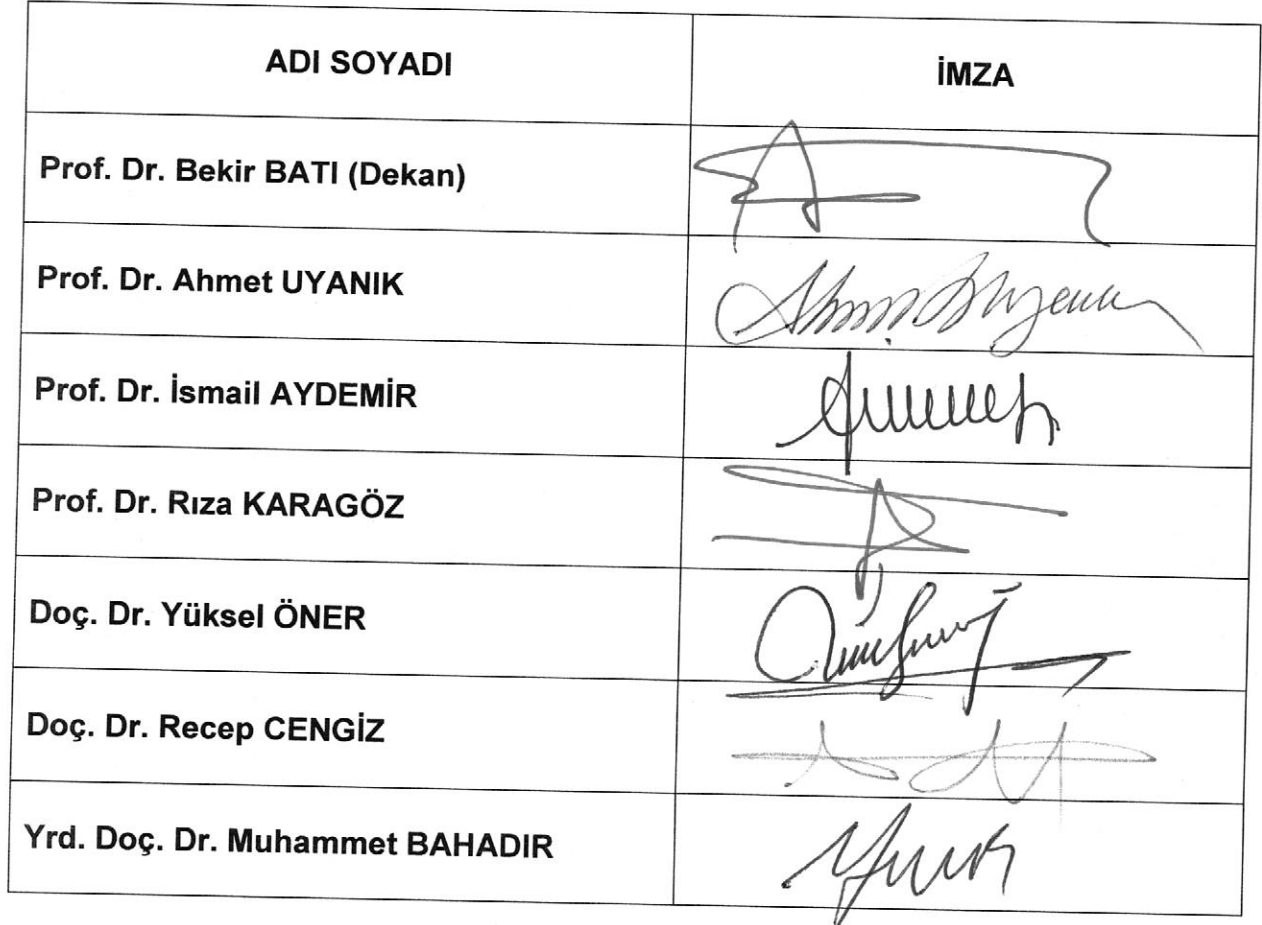 ADI SOYADI İMZA
Prof. Dr. Bekir BATI (Dekan)
Prof. Dr. Ahmet UYANIK
Prof. Dr. İsmail AYDEMİR
Prof. Dr. Rıza KARAGÖZ
Doç. Dr. Yüksel ÖNER
Doç. Dr. Recep CENGİZ
Yrd. Doç. Dr. Muhammet BAHADIR